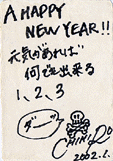 A HAPPY
NEW YEAR!!
元気があれば
何でも出来る
1、2、3
ダーッ
2002.2.